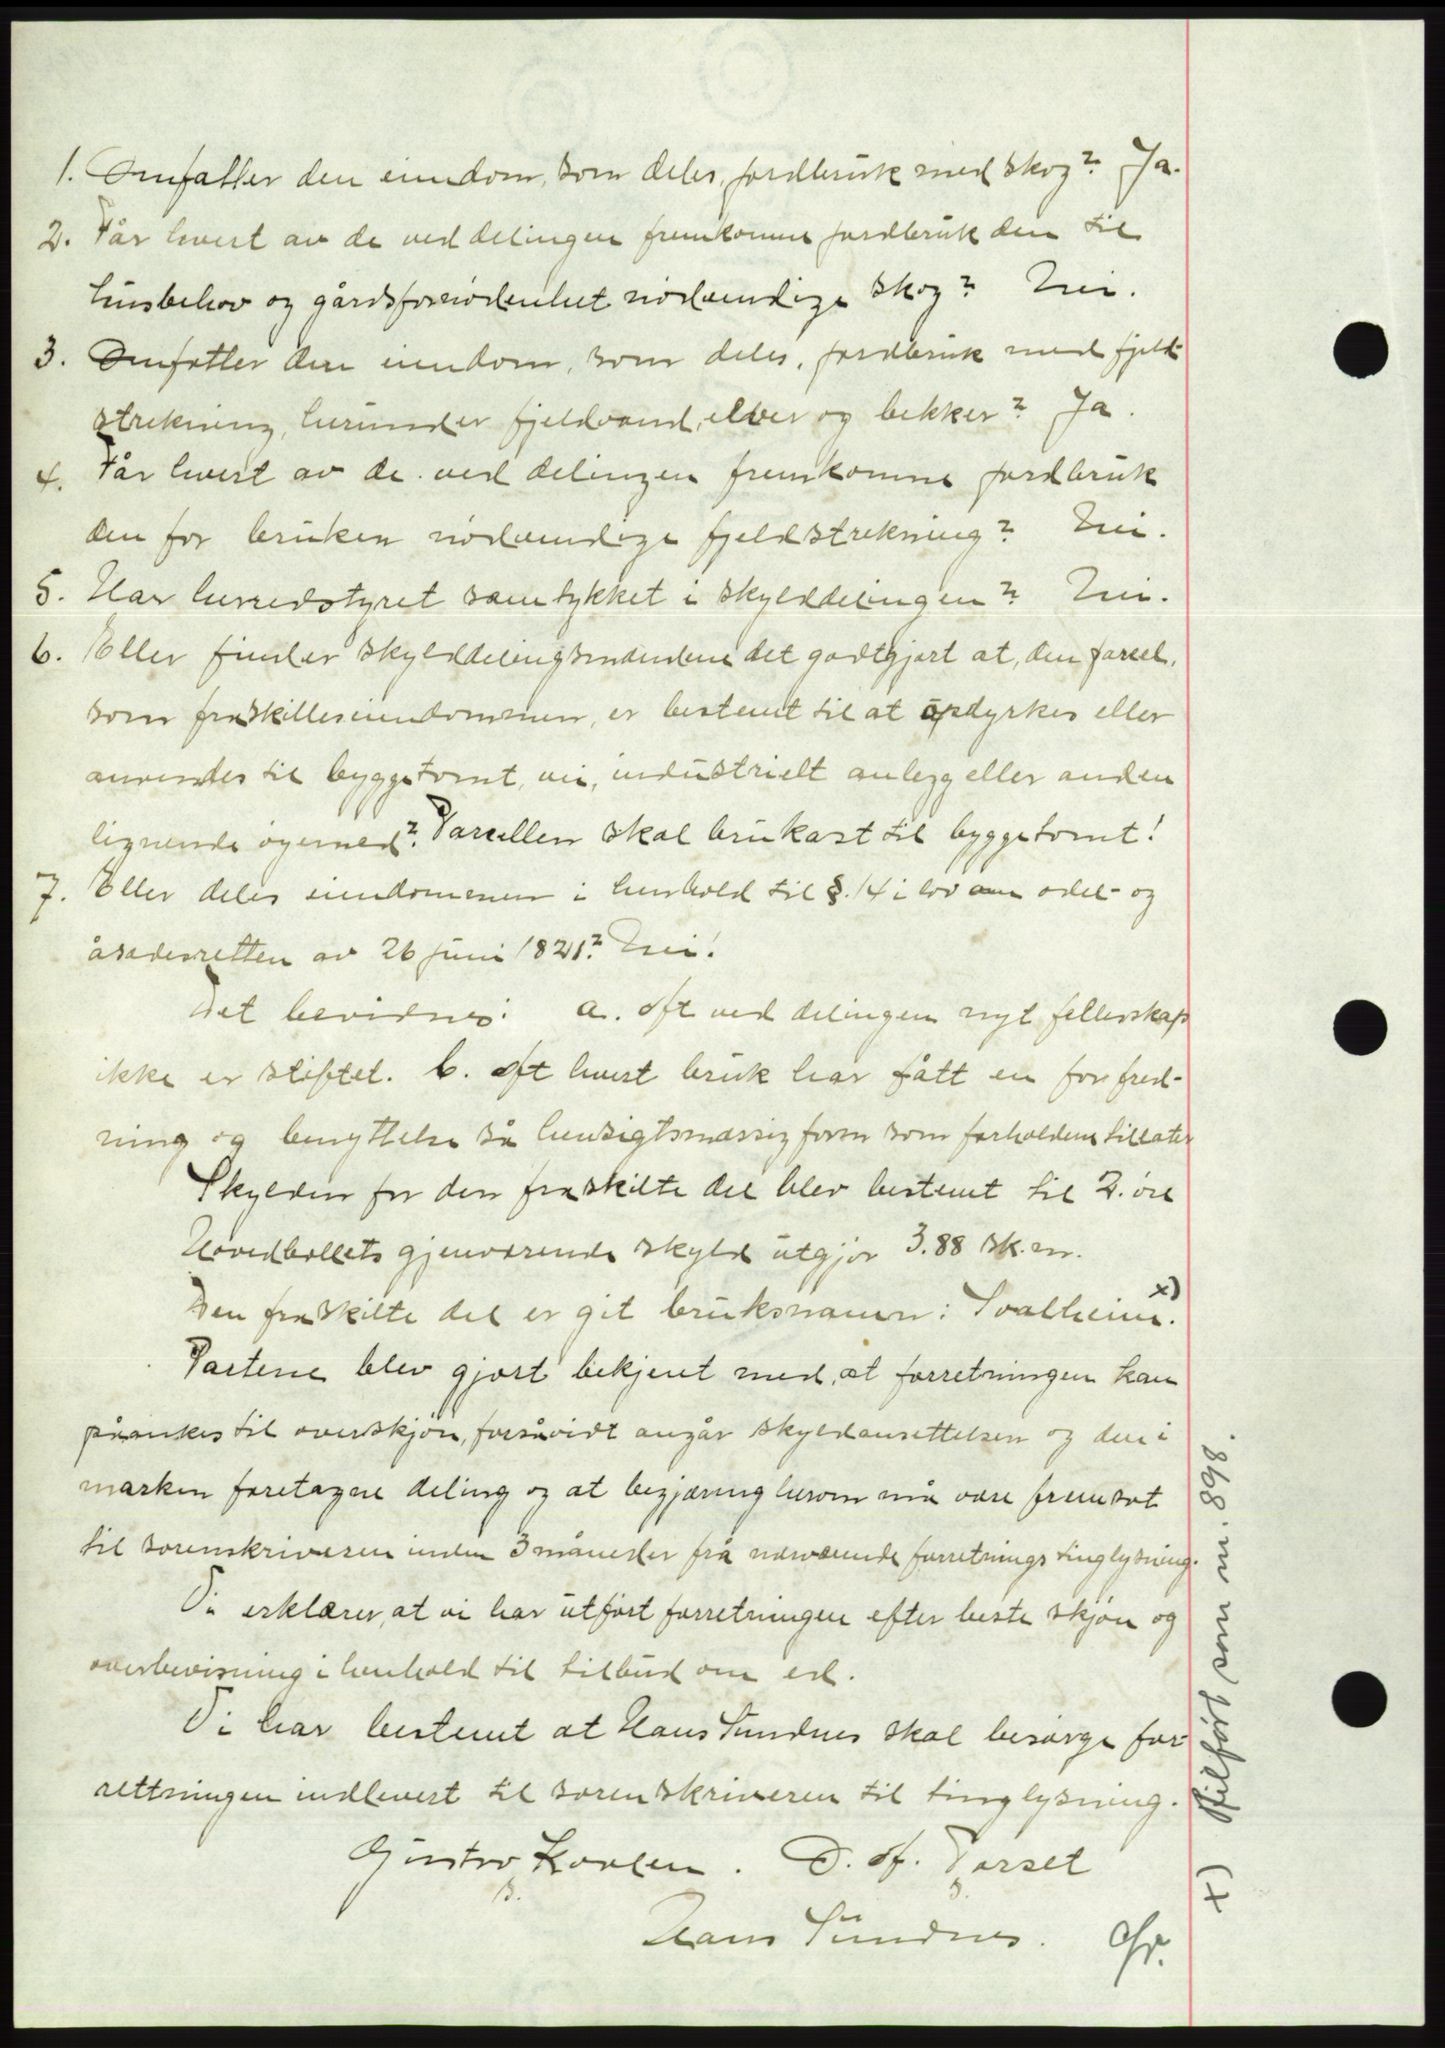 1. Omfatter den eiendom, som deles, jordbruk med skog? Ja.
2. Får hvert av de ved delingen fremkomne jordbruk den til
husbehov og gårdsfornødenhet nødvendige skog? Nei.
3. Omfatter den eiendom, som deles, jordbruk med fjeld-
strekning, herunder fjeldvand, elver og bekker? Ja.
4. Får hvert av de ved delingen fremkomne jordbruk
den for bruken nødvendige fjeldstrekning? Nei.
5. Har herredstyret samtykket i skylddelingen? Nei.
6. Eller finder skylddelingsmændene det godtgjort at, den parsel,
som fraskilles eiendommen, er bestemt til at opdyrkes eller
anvendes til byggetomt, vei, industrielt anlegg eller anden
lignende øiemed? Parsellen skal brukast til byggetomt!
7. Eller deles eiendommen i henhold til §.14 i lov om odel- og
åsædesretten av 26 juni 1821? Nei!
Det bevidnes: a. At ved delingen nyt fellesskap
ikke er stiftet. b. At hvert bruk har fått en for fred-
ning og benyttelse så hensigtsmæssig form som forholdene tillater
Skylden for den fraskilte del blev bestemt til 2. øre
Hovedbøllets gjenværende skyld utgjør 3.88 sk.m.
Den fraskilte del er git bruksnamn: Svalheim. x)
Partene blev gjort bekjent med, at forretningen kan
påankes til overskjøn, forsåvidt angår skyldansettelsen og den i
marken foretagne deling og at begjæring herom må være fremsat
til sorenskriveren inden 3 måneder frå nærværende forretnings tinglysning.
Vi erklærer, at vi har utført forretningen efter beste skjøn og
overbevisning i henhold til tilbud om ed.
Vi har bestemt at Hans Sundnes skal besørge for-
rettningen indlevert til sorenskriveren til tinglysning.
Gustav Kvalen. O. A. Tarset
Hans Sundnes.
x) Tilført som nr. 898.